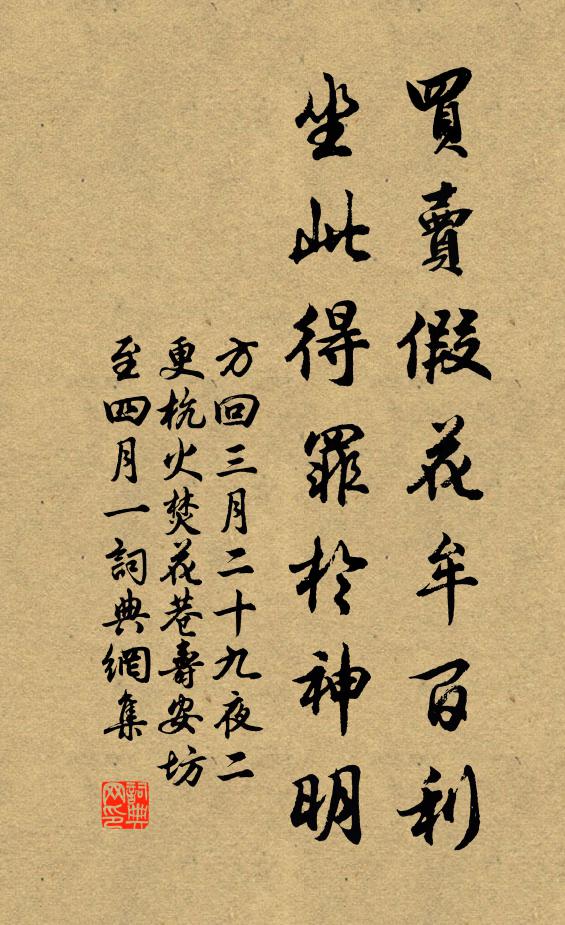 買賣假花牟百利
坐此得罪於神明
方回三月二十九夜二
更杭火焚花巷壽安坊
至四月一詞典網集
詞典
网印